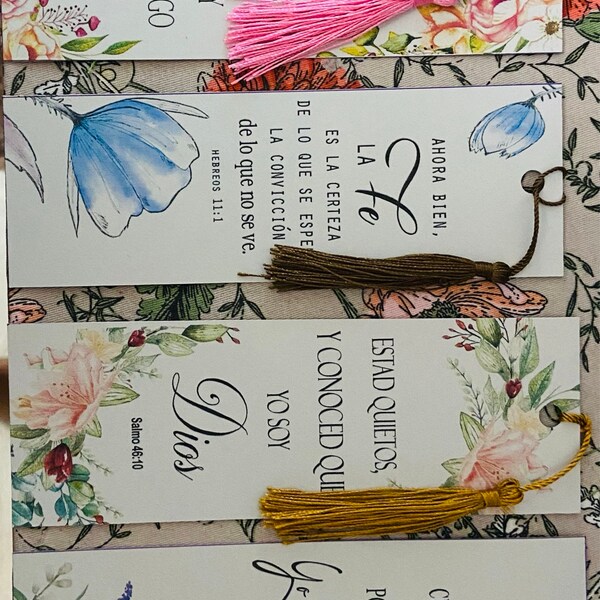 Y
GO
AHORA BIEN,
LA
Fe
ES LA CERTEZA
DE LO QUE SE ESPE
LA CONVICCIÓN
de lo que no se ve.
HEBREOS 11:1
ESTAD QUIETOS,
Y CONOCED QUE
YO SOY
Dios
Salmo 46:10